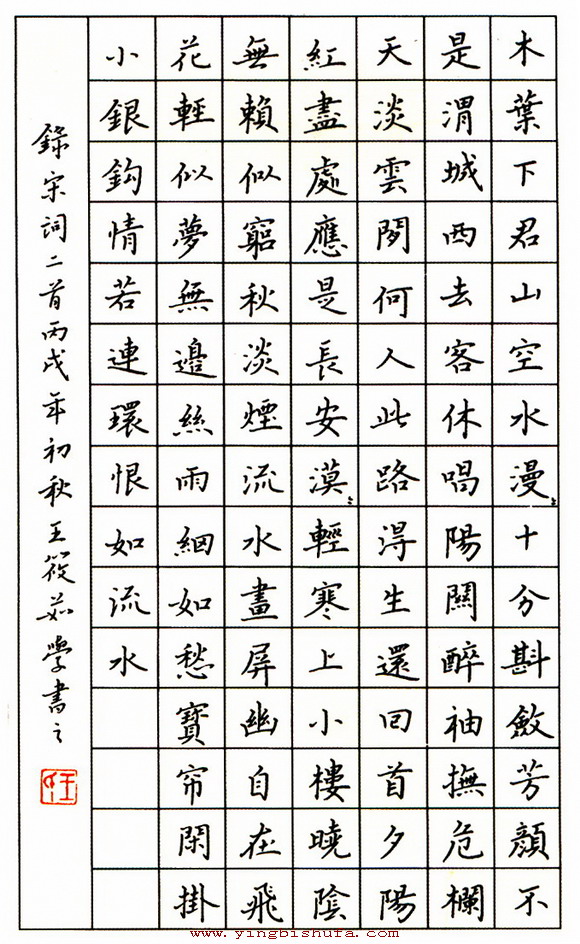 木葉下君山空水漫〻十分斟斂芳顏不
是渭城西去客休唱陽關醉袖撫危欄
天淡雲閒何人此路得生還回首夕陽
紅盡處應是長安漠〻輕寒上小樓曉陰
無賴似窮秋淡煙流水畫屏幽自在飛
花輕似夢無邊絲雨細如愁寶帘閑掛
小銀鈎情若連環恨如流水
錄宋詞二首丙戌年初秋王筱茹學書之
www.yingbishufa.com